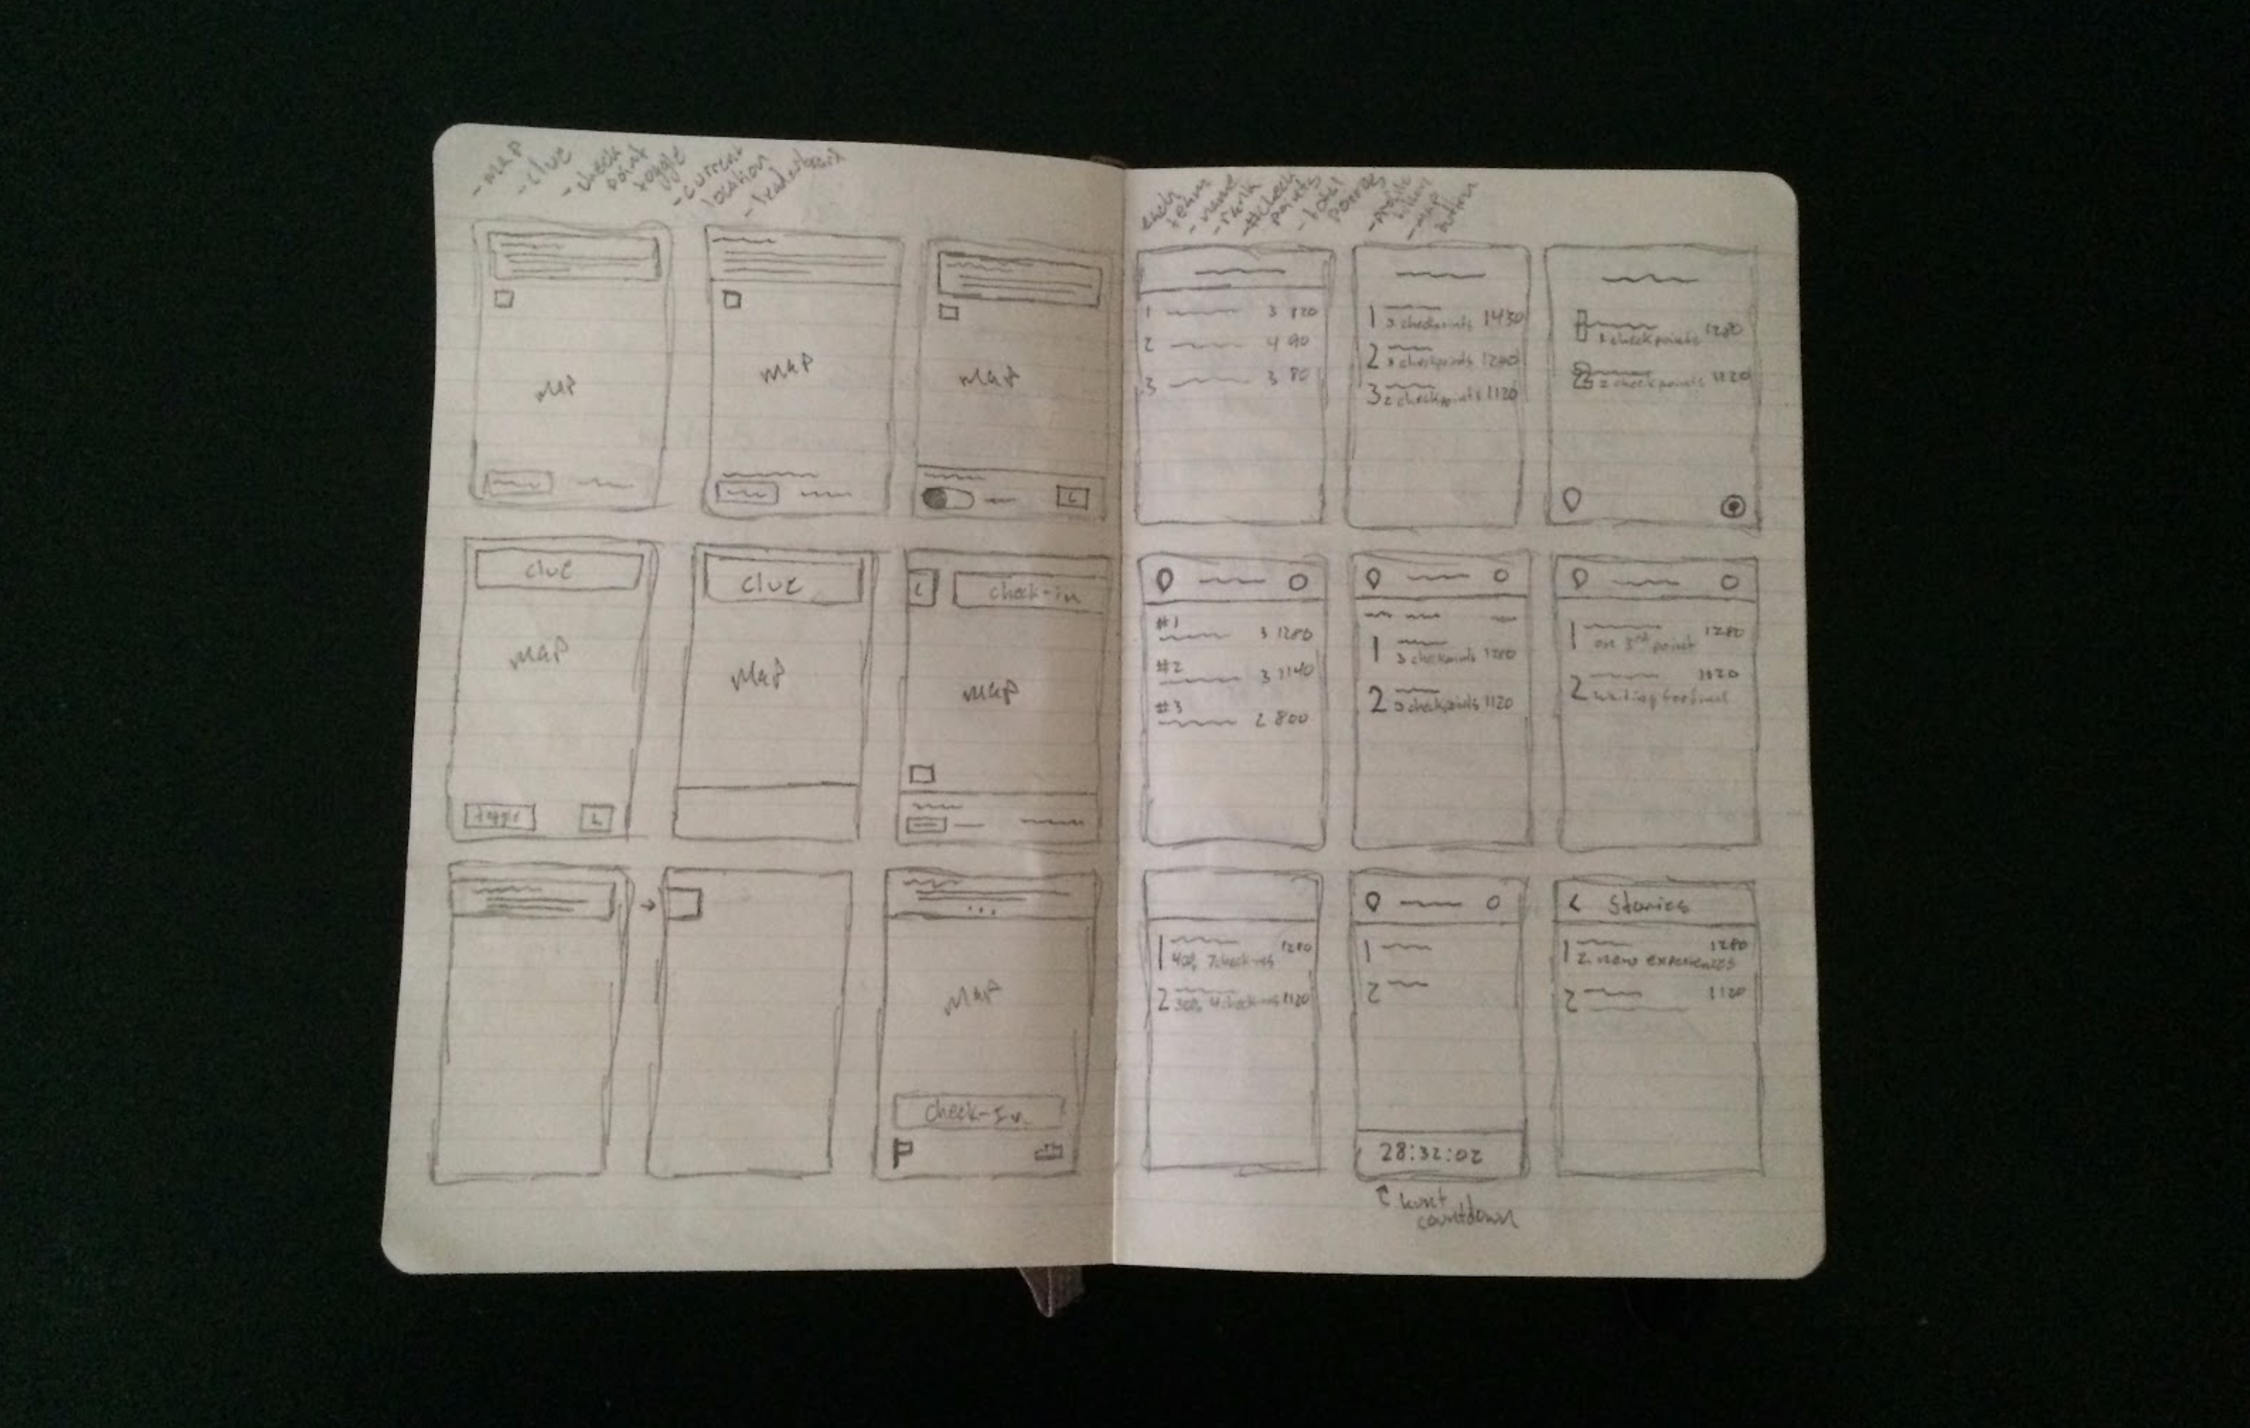 - map
- clue
- check
point
toggle
- current
location
- leaderboard
map
map
map
L
clue
map
toggle
L
clue
map
L
check-in
map
map
check-in
each
team
- name
- rank
- # check
points
- total
points
- map
button
1 3 820
2 4 90
3 3 80
1 3 checkpoints 1430
2 3 checkpoints 1200
3 2 checkpoints 1120
1 checkpoints 1280
2 2 checkpoints 1120
#1
3 1280
#2
3 1140
#3
2 800
1 3 checkpoints 1280
2 checkpoints 1120
1 1280
on 3rd point
2 1120
1 1280
7 check-ins
2 4 check-ins 1120
1
2
28:32:02
hunt
countdown
< Stories
1 1280
2 new experiences
2 1120